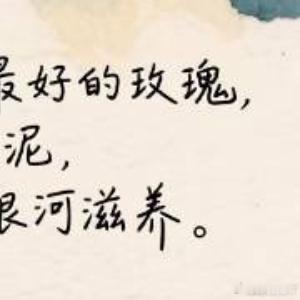 最好的玫瑰,
泥,
银河滋养。